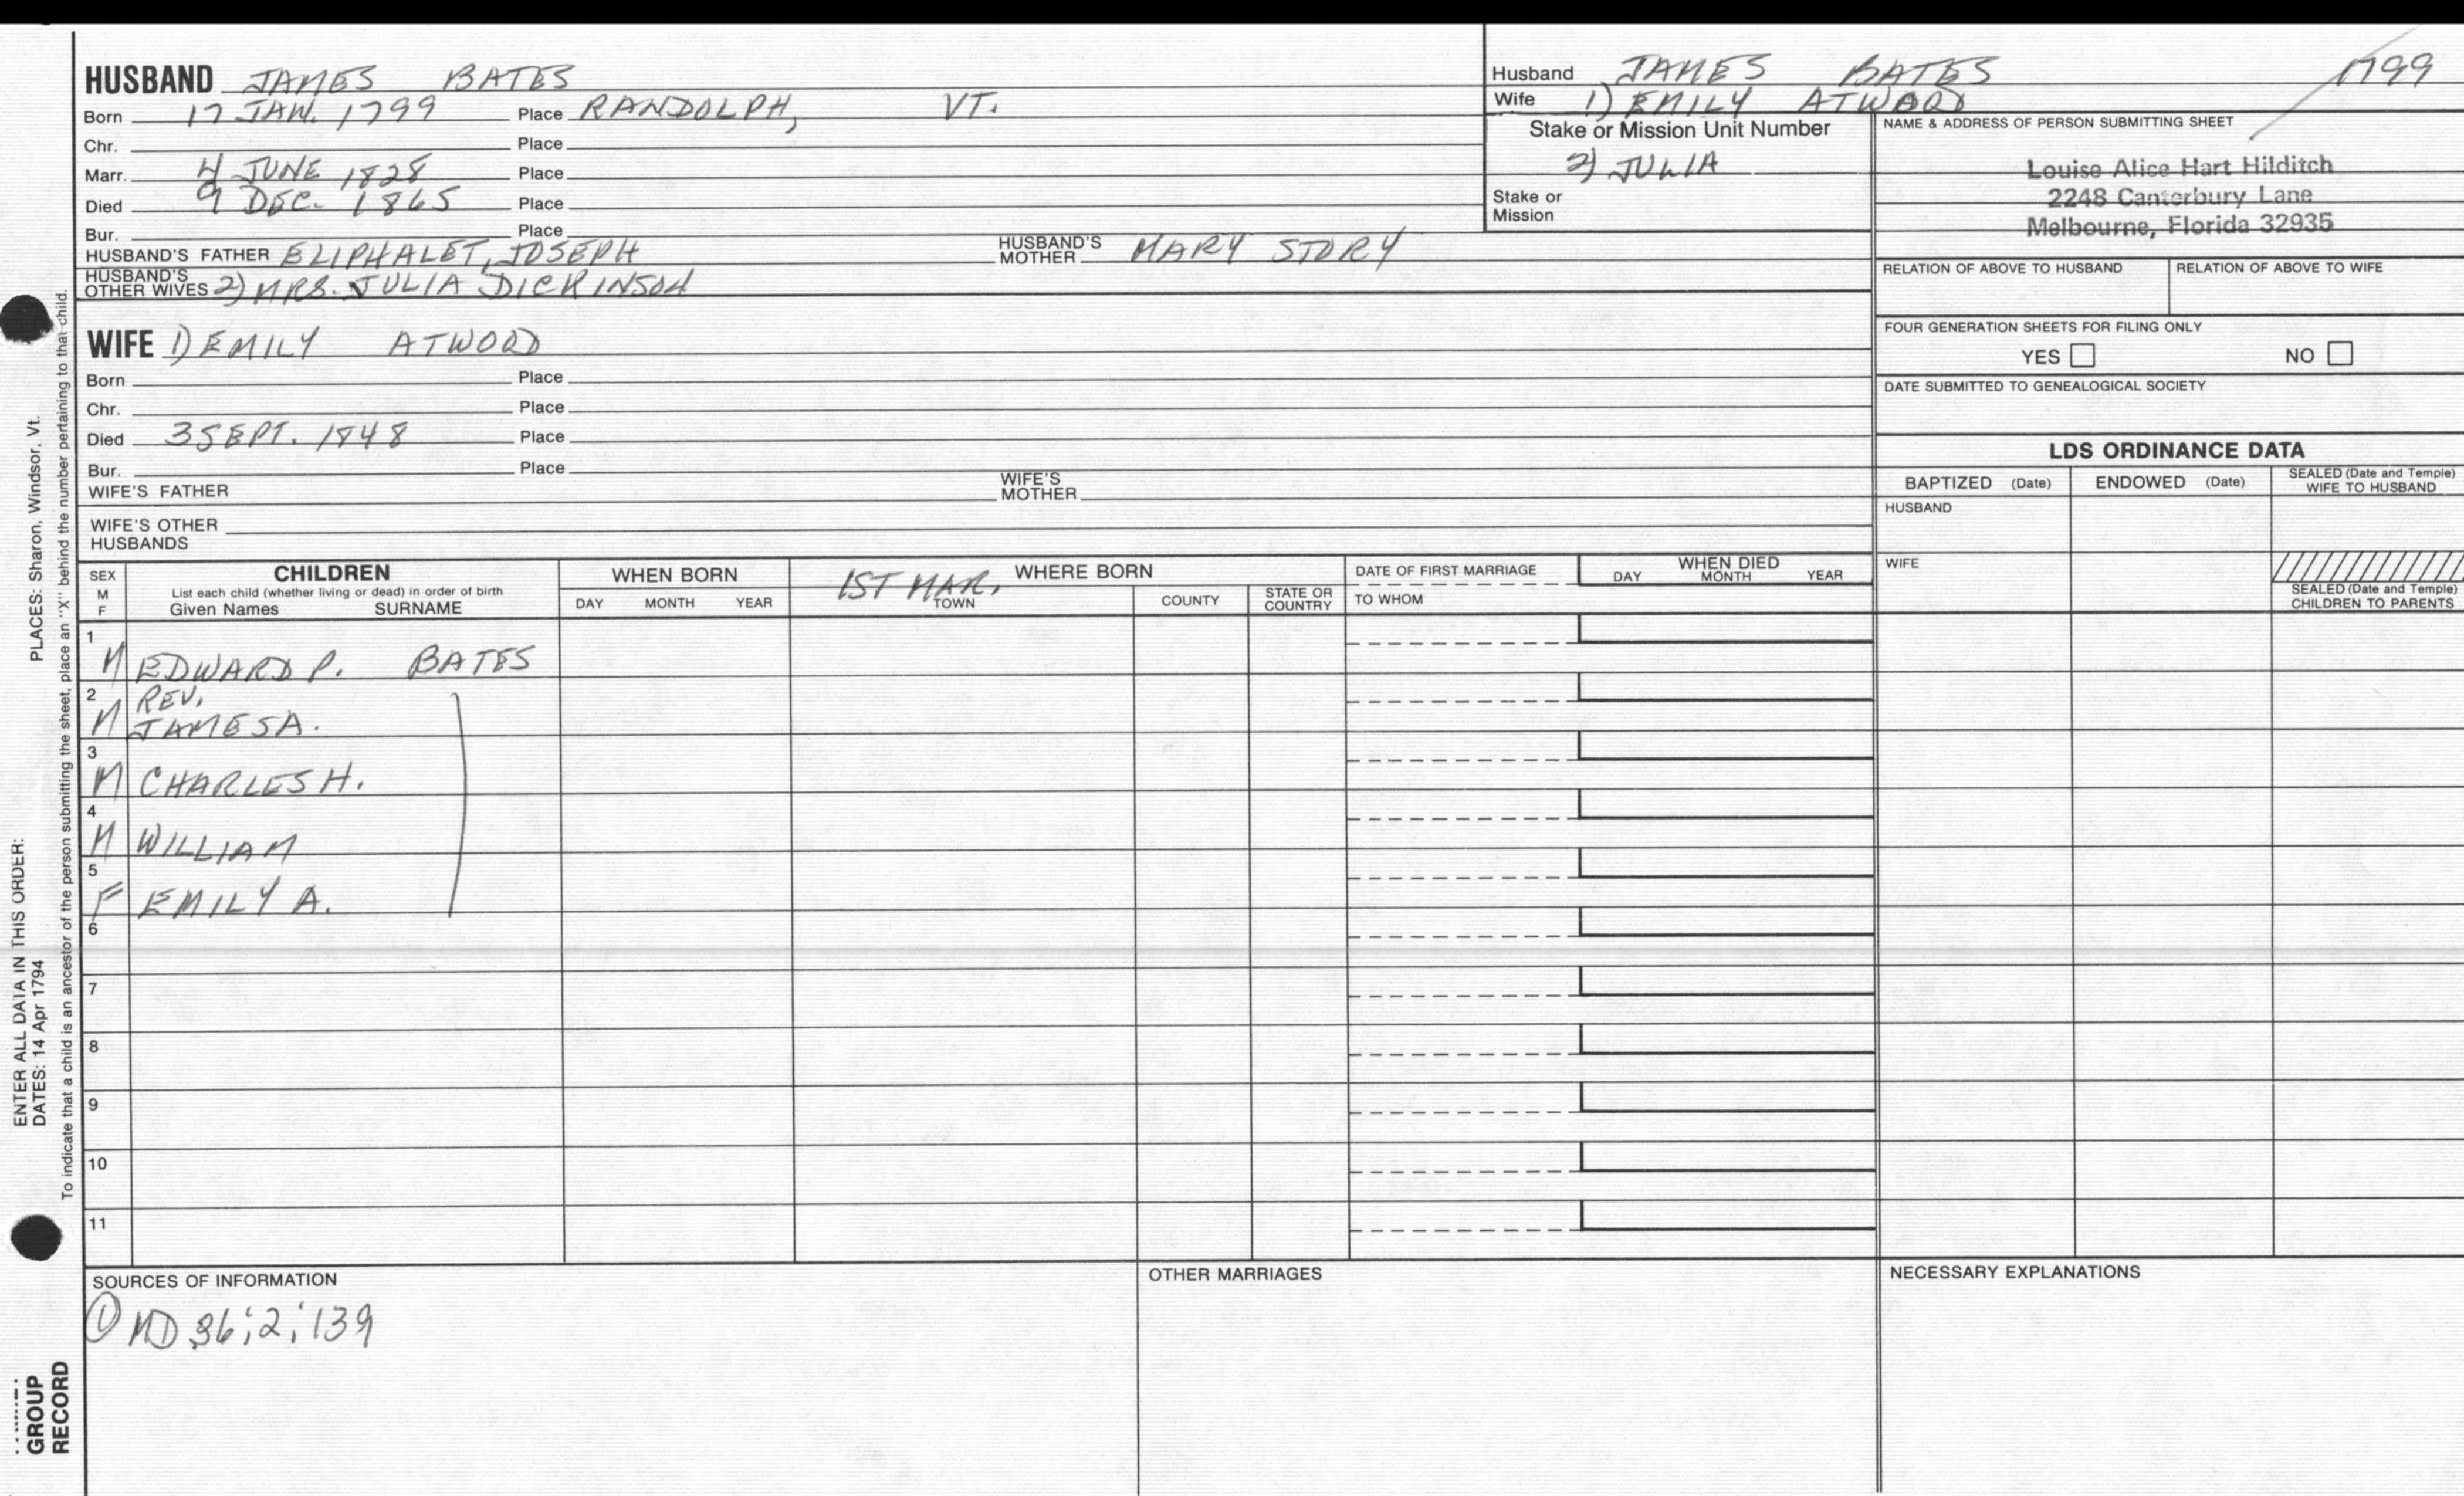 HUSBAND JAMES BATES
Born 17 JAN. 1799 Place RANDOLPH, VT.
Chr. Place
Marr. 4 JUNE 1828 Place
Died 9 DEC. 1865 Place
Bur. Place
HUSBAND'S FATHER ELIPHALET, JOSEPH HUSBAND'S MOTHER MARY STORY
HUSBAND'S OTHER WIVES 2) MRS. JULIA DICKINSON
WIFE 1) EMILY ATWOOD
Born Place
Chr. Place
Died 3 SEPT. 1848 Place
Bur. Place
WIFE'S FATHER WIFE'S MOTHER
WIFE'S OTHER HUSBANDS
Husband JAMES BATES 1799
Wife 1) EMILY ATWOOD
Stake or Mission Unit Number
2) JULIA
Stake or
Mission
NAME & ADDRESS OF PERSON SUBMITTING SHEET
Louise Alice Hart Hilditch
2248 Canterbury Lane
Melbourne, Florida 32935
RELATION OF ABOVE TO HUSBAND RELATION OF ABOVE TO WIFE
FOUR GENERATION SHEETS FOR FILING ONLY
YES NO
DATE SUBMITTED TO GENEALOGICAL SOCIETY
LDS ORDINANCE DATA
BAPTIZED (Date) ENDOWED (Date) SEALED (Date and Temple) WIFE TO HUSBAND
HUSBAND
WIFE
SEALED (Date and Temple) CHILDREN TO PARENTS
SEX M F
CHILDREN
List each child (whether living or dead) in order of birth
Given Names SURNAME
WHEN BORN
DAY MONTH YEAR
1ST MAR. WHERE BORN
TOWN COUNTY STATE OR COUNTRY
DATE OF FIRST MARRIAGE
TO WHOM
WHEN DIED
DAY MONTH YEAR
1 M EDWARD P. BATES
2 M REV. JAMES A.
3 M CHARLES H.
4 M WILLIAM
5 F EMILY A.
6
7
8
9
10
11
SOURCES OF INFORMATION
① MD 36;2;139
OTHER MARRIAGES
NECESSARY EXPLANATIONS
ENTER ALL DATA IN THIS ORDER:
DATES: 14 Apr 1794 PLACES: Sharon, Windsor, Vt.
To indicate that a child is an ancestor of the person submitting the sheet, place an "X" behind the number pertaining to that child.
GROUP
RECORD